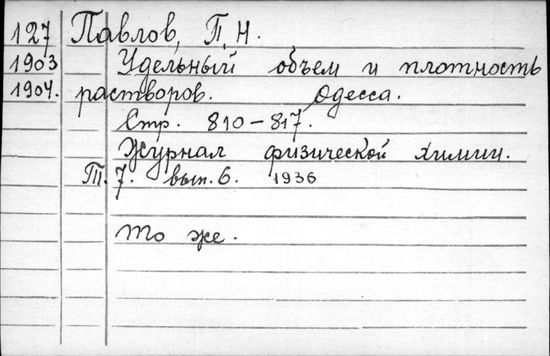 127 Павлов, П. Н.
1903 Удельный объем и плотность
1904. растворов. Одесса.
Стр. 810-817.
Журнал физической химии.
Т. 7. вып. 6. 1936
То же.